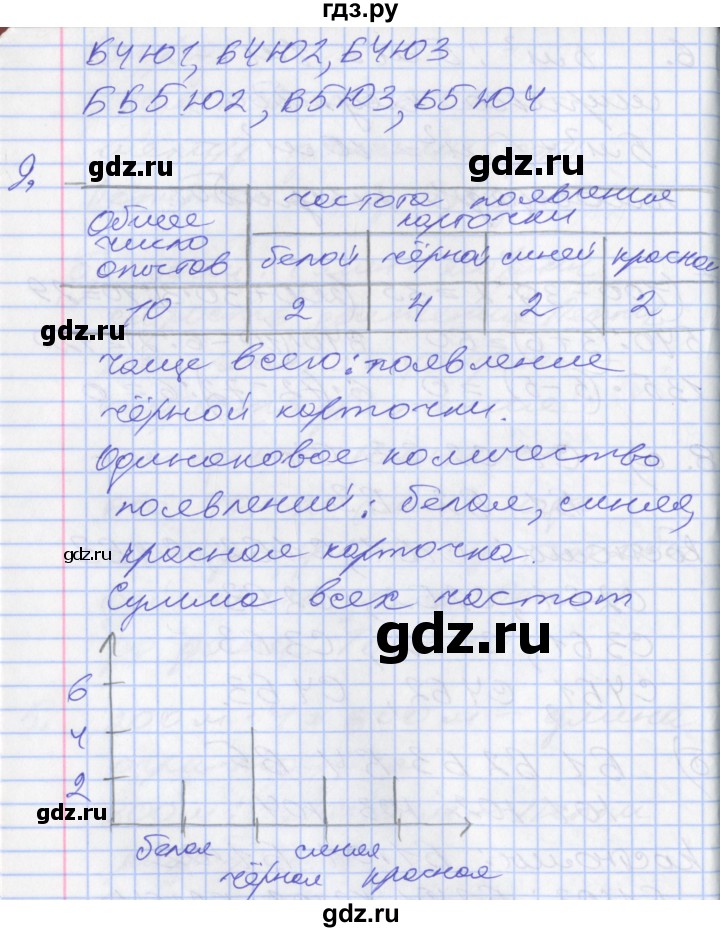 гдз.ру
Б4Ю1, Б4Ю2, Б4Ю3
ББ5Ю2, В5Ю3, Б5Ю4
gdz.ru
gdz.ru
9.
Общее число опытов
частота появления карточки
белой чёрной синей красной
10 2 4 2 2
gdz.ru
чаще всего: появление
чёрной карточки.
Одинаковое количество
появлений: белая, синяя,
gdz.ru
красная карточка.
Сумма всех частот
gdz.ru
6
4
2
gdz.ru
белая синяя
чёрная красная
gdz.ru